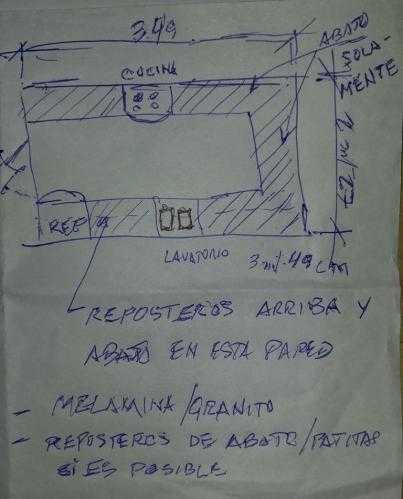 3.49
COCINA
ABAJO
SOLA-
MENTE
2 m/27
REF
LAVATORIO
3 mt. 49 cm
REPOSTEROS ARRIBA Y
ABAJO EN ESTA PARED
- MELAMINA/GRANITO
- REPOSTEROS DE ABAJO/PATITAS
SI ES POSIBLE